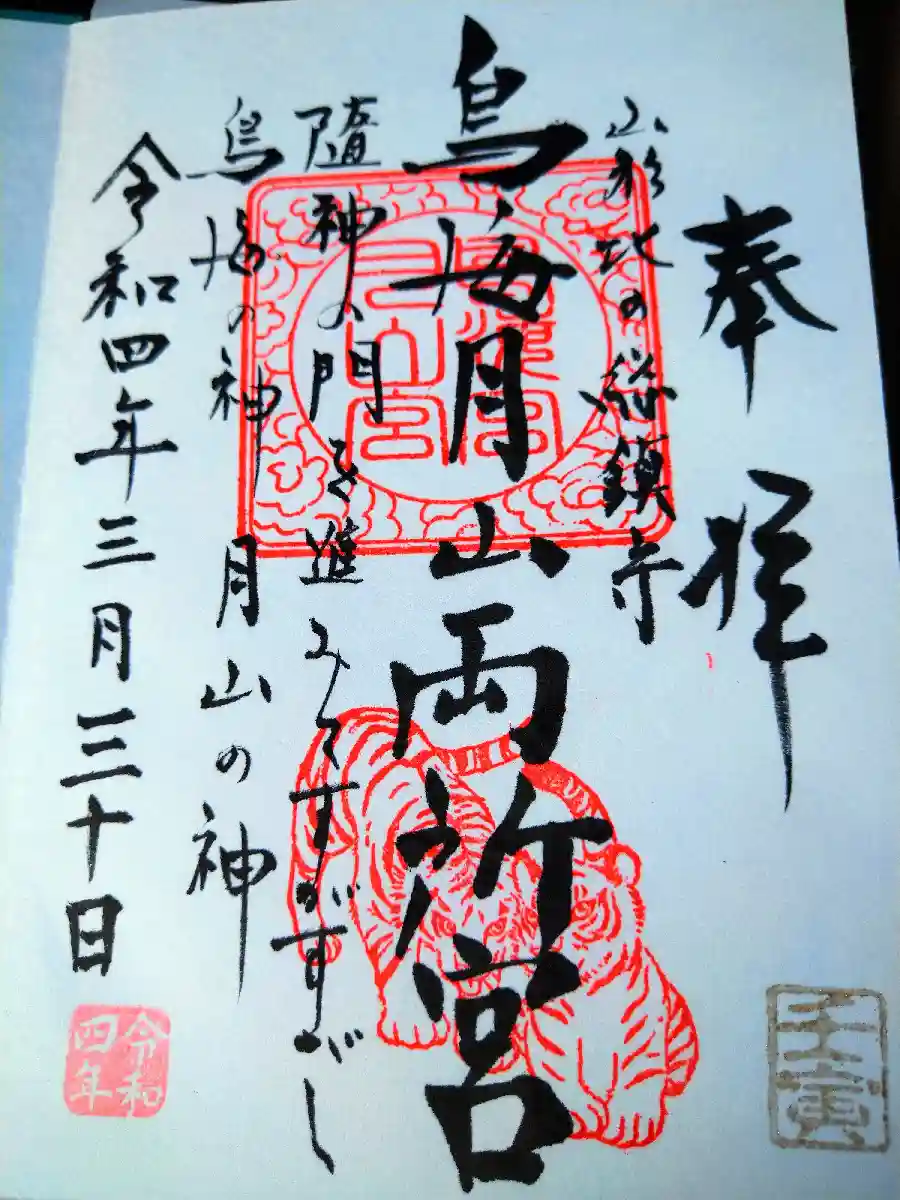 奉拝
山形北の総鎮守
鳥海月山両所宮
随神の門を進みてすがすがし
鳥海の神 月山の神
令和四年三月三十日
令和四年
壬寅